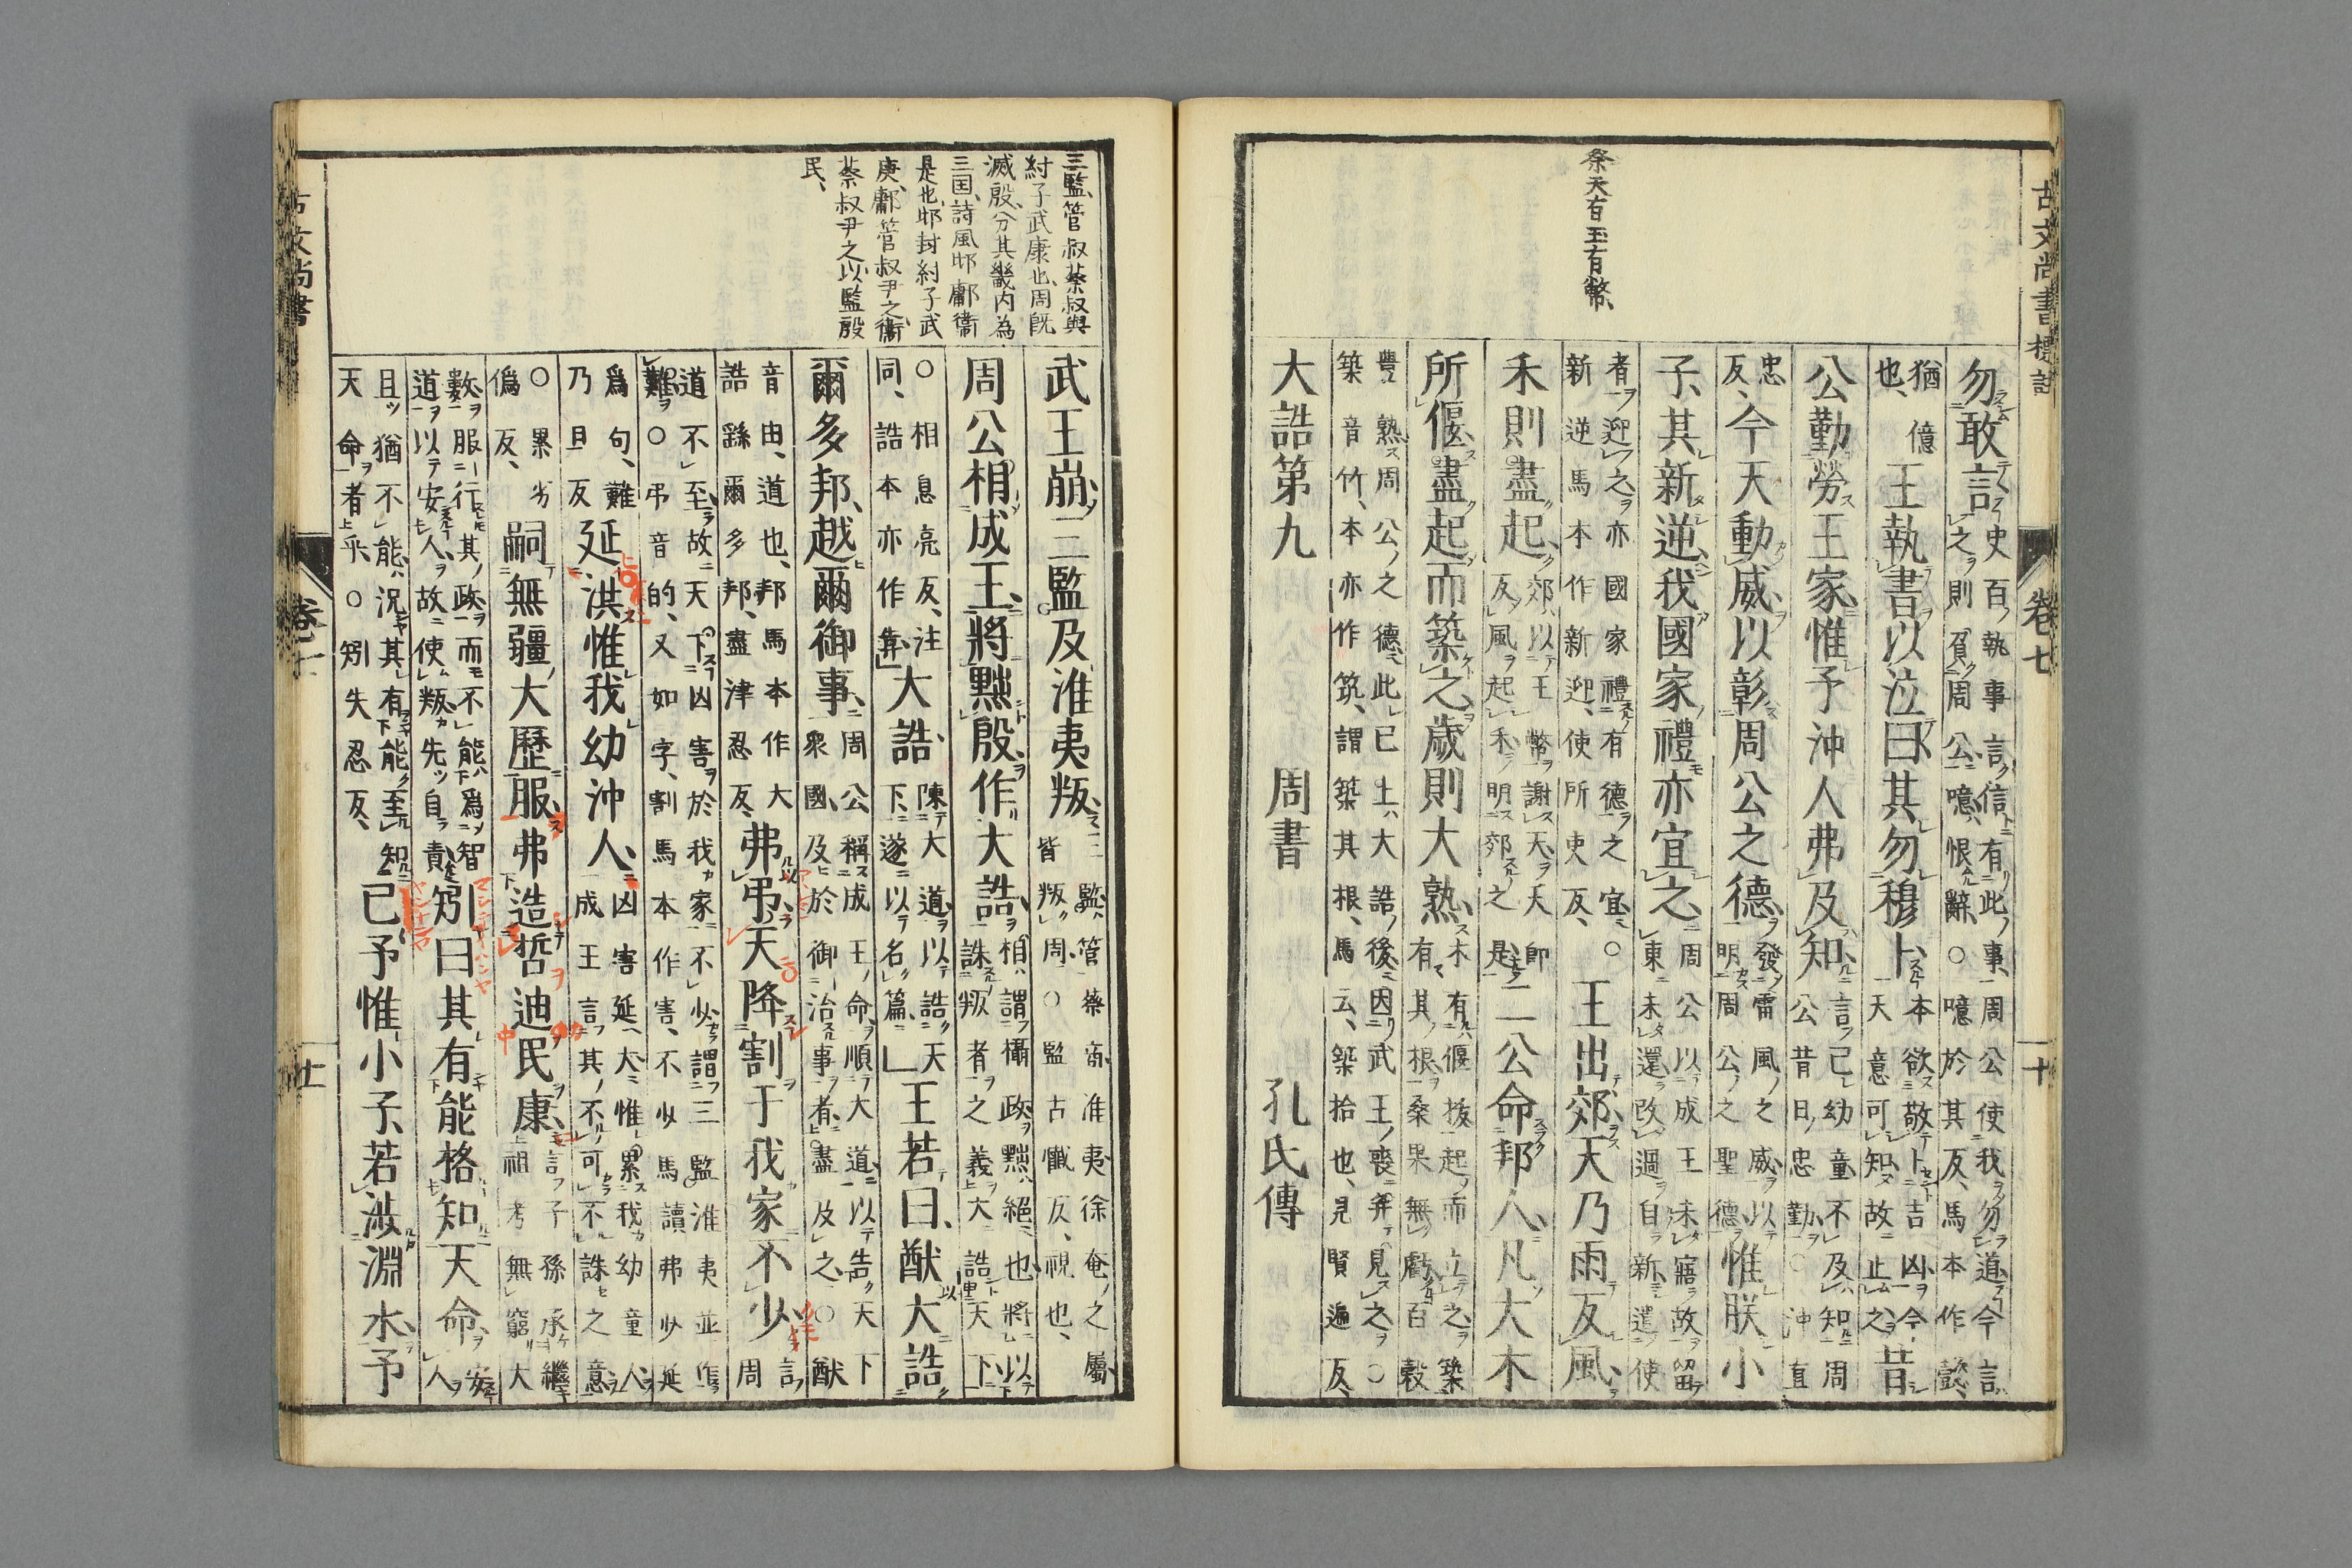 古文尚書標註
卷七
十
祭天有玉有幣、
勿敢言史百執事言信有此事、周公使我勿道今言
之則負周公噫恨辭○噫於其反、馬本作懿、
猶億也、王執書以泣曰其勿穆卜本欲敬卜吉凶今天意可知故止之昔
公勤勞王家惟予沖人弗及知言己幼童不及知周公昔日忠勤○沖直
忠反、今天動威以彰周公之德發雷風之威以明周公之聖德惟朕小
子、其新逆我國家禮亦宜之周公以成王未寤故留東未還改過自新遣使
者迎之亦國家禮有德之宜○新逆馬本作新迎、使所吏反、王出郊天乃雨反風
禾則盡起郊以王幣謝天天即反風起禾明郊之是二公命邦人凡大木
所偃盡起而築之歲則大熟木有偃拔起而立之築有其根桑果無虧百穀
豐熟周公之德此已上大誥後因武王喪并見之○
築音竹、本亦作筑、謂築其根、馬云、築拾也、見賢遍反、
大誥第九 周書 孔氏傳
三監、管叔蔡叔與
紂子武康也、周既
滅殷、分其畿内為
三国、詩風邶鄘衛
是也、邶封紂子武
庚、鄘管叔尹之、衛
蔡叔尹之、以監殷
民、
武王崩三監及淮夷叛三監管蔡商淮夷徐奄之屬皆叛周○監古懺反、視也、
周公相成王、將黜殷作大誥相謂攝政黜絕也將以誅叛者之義大誥天下
○相息亮反、注同、誥本亦作𢍘大誥、陳大道以誥天下、遂以名篇王若曰、猷大誥
爾多邦、越爾御事、周公稱成王命順大道以告天下衆國、及於御治事者盡及之○猷
音由、道也、邦馬本作大誥繇爾多邦、盡津忍反、弗弔、天降割于我家不少言周
道不至故天下凶害於我家不少謂三監淮夷並作
難○弔音的、又如字、割馬本作害、不少馬讀弗少延
爲句、難乃旦反延、洪惟我幼沖人凶害延大惟累我幼童人成王言其不可不誅之意
○累劣偽反、嗣無疆大歷服、弗造哲迪民康言子孫承繼祖考無窮大
數服行其政而不能爲智道以安人故使叛先自責矧曰其有能格知天命安人
且猶不能況其有能至知天命者乎○矧失忍反、已予惟小子、若涉淵水予
古文尚書
卷七
十一